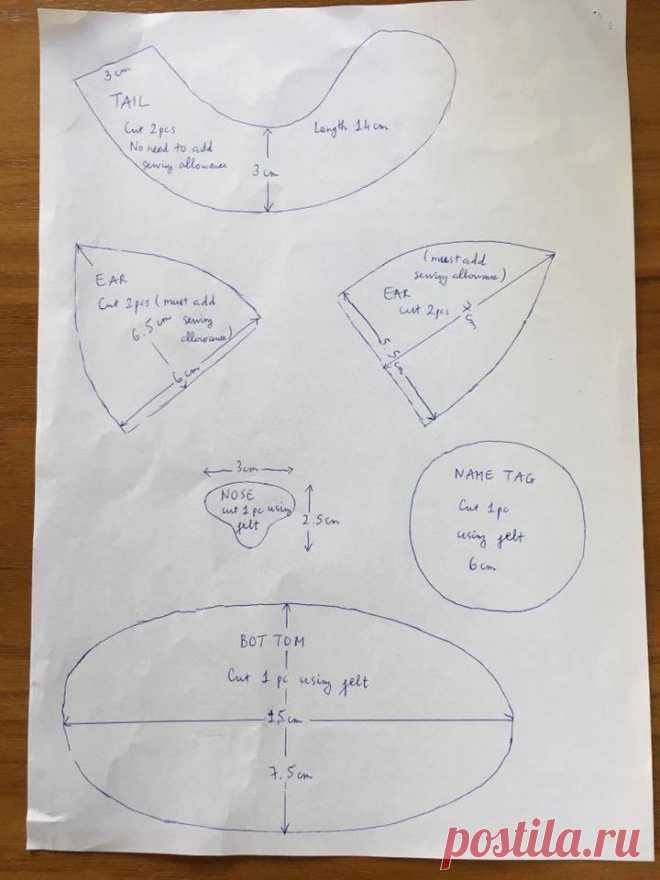 3cm
TAIL
Cut 2pcs
No need to add
sewing allowance
Length 14cm
3cm
EAR
Cut 2pcs (must add
sewing
allowance)
6.5cm
6cm
(must add
sewing allowance)
EAR
cut 2pcs
7cm
5.5cm
3cm
NOSE
cut 1 pc using
felt
2.5cm
NAME TAG
Cut 1pc
using felt
6cm
BOTTOM
Cut 1 pc using felt
15cm
7.5cm
postila.ru